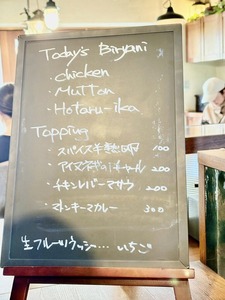 Today's Biryani
・chicken
・Mutton
・Hotaru-ika
Topping
・スパイス 100
・アチャール 200
・チキンレバーマサラ 200
・マトンキーマカレー 300
生フルーツラッシー… いちご